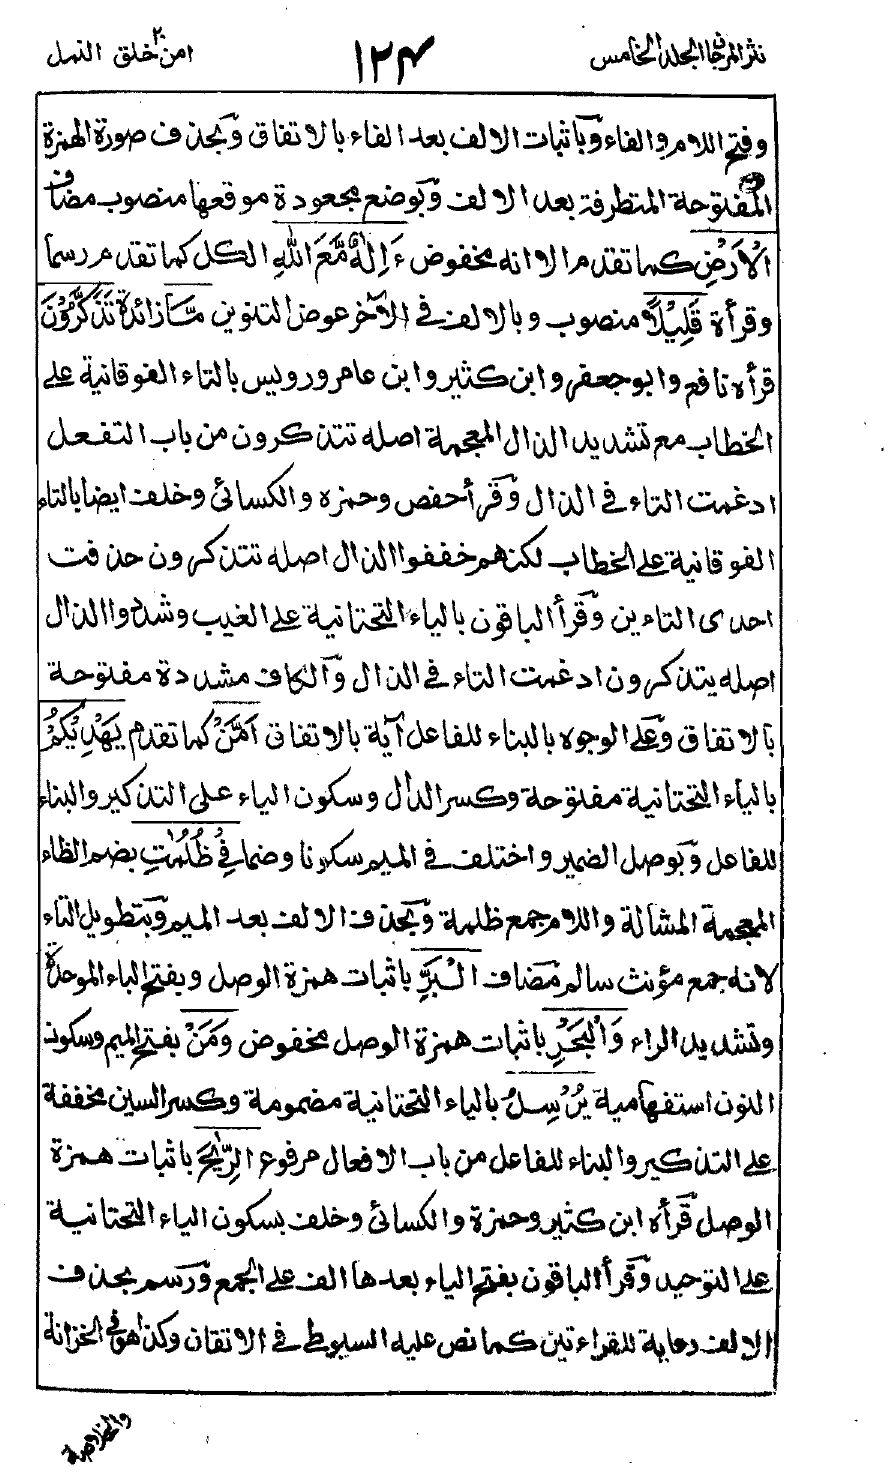 نثر المرجان المجلد الخامس
١٢٤
امن خلق ٢٠ النمل
وفتح اللام والفاء وباثبات الالف بعد الفاء بالاتفاق وبحذف صورة الهمزة
المفتوحة المتطرفة بعد الالف وبوضع مجعودة موقعها منصوب مضاف
الْاَرْضِ كما تقدم الا انه مخفوض ءَاِلٰهٌ مَّعَ اللّٰهِ الكل كما تقدم رسما
وقرأة قَلِيْلًا منصوب وبالالف في الآخر عوض التنوين مَّا زائدة تَذَكَّرُوْنَ
قرأه نافع وابو جعفر وابن كثير وابن عامر ورويس بالتاء الفوقانية على
الخطاب مع تشديد الذال المعجمة اصله تتذكرون من باب التفعل
ادغمت التاء في الذال وقرأ حفص وحمزه والكسائى وخلف ايضا بالتاء
الفوقانية على الخطاب لكنهم خففوا الذال اصله تتذكرون حذفت
احدى التاءين وقرأ الباقون بالياء التحتانية على الغيب وشددوا الذال
اصله يتذكرون ادغمت التاء في الذال والكاف مشددة مفتوحة
بالاتفاق وعلى الوجوه بالبناء للفاعل آية بالاتفاق اَمَّنْ كما تقدم يَهْدِيْكُمْ
بالياء التحتانية مفتوحة وكسر الدال وسكون الياء على التذكير والبناء
للفاعل وبوصل الضمير واختلف في الميم سكونا وضما فِيْ ظُلُمٰتِ بضم الظاء
المعجمة المشالة واللام جمع ظلمة وبحذف الالف بعد الميم وبتطويل التاء
لانه جمع مؤنث سالم مضاف الْبَرِّ باثبات همزة الوصل وبفتح الباء الموحدة
وتشديد الراء وَالْبَحْرِ باثبات همزة الوصل مخفوض وَمَنْ بفتح الميم وسكون
النون استفهامية يُرْسِلُ بالياء التحتانية مضمومة وكسر السين مخففة
على التذكير والبناء للفاعل من باب الافعال مرفوع الرِّيٰحَ باثبات همزة
الوصل قرأه ابن كثير وحمزة والكسائى وخلف بسكون الياء التحتانية
على التوحيد وقرأ الباقون بفتح الياء بعدها الف على الجمع ورسم بحذف
الالف رعاية للقراءتين كما نص عليه السيوطى في الاتقان وكذا هو في الخزانة
والخلاصة